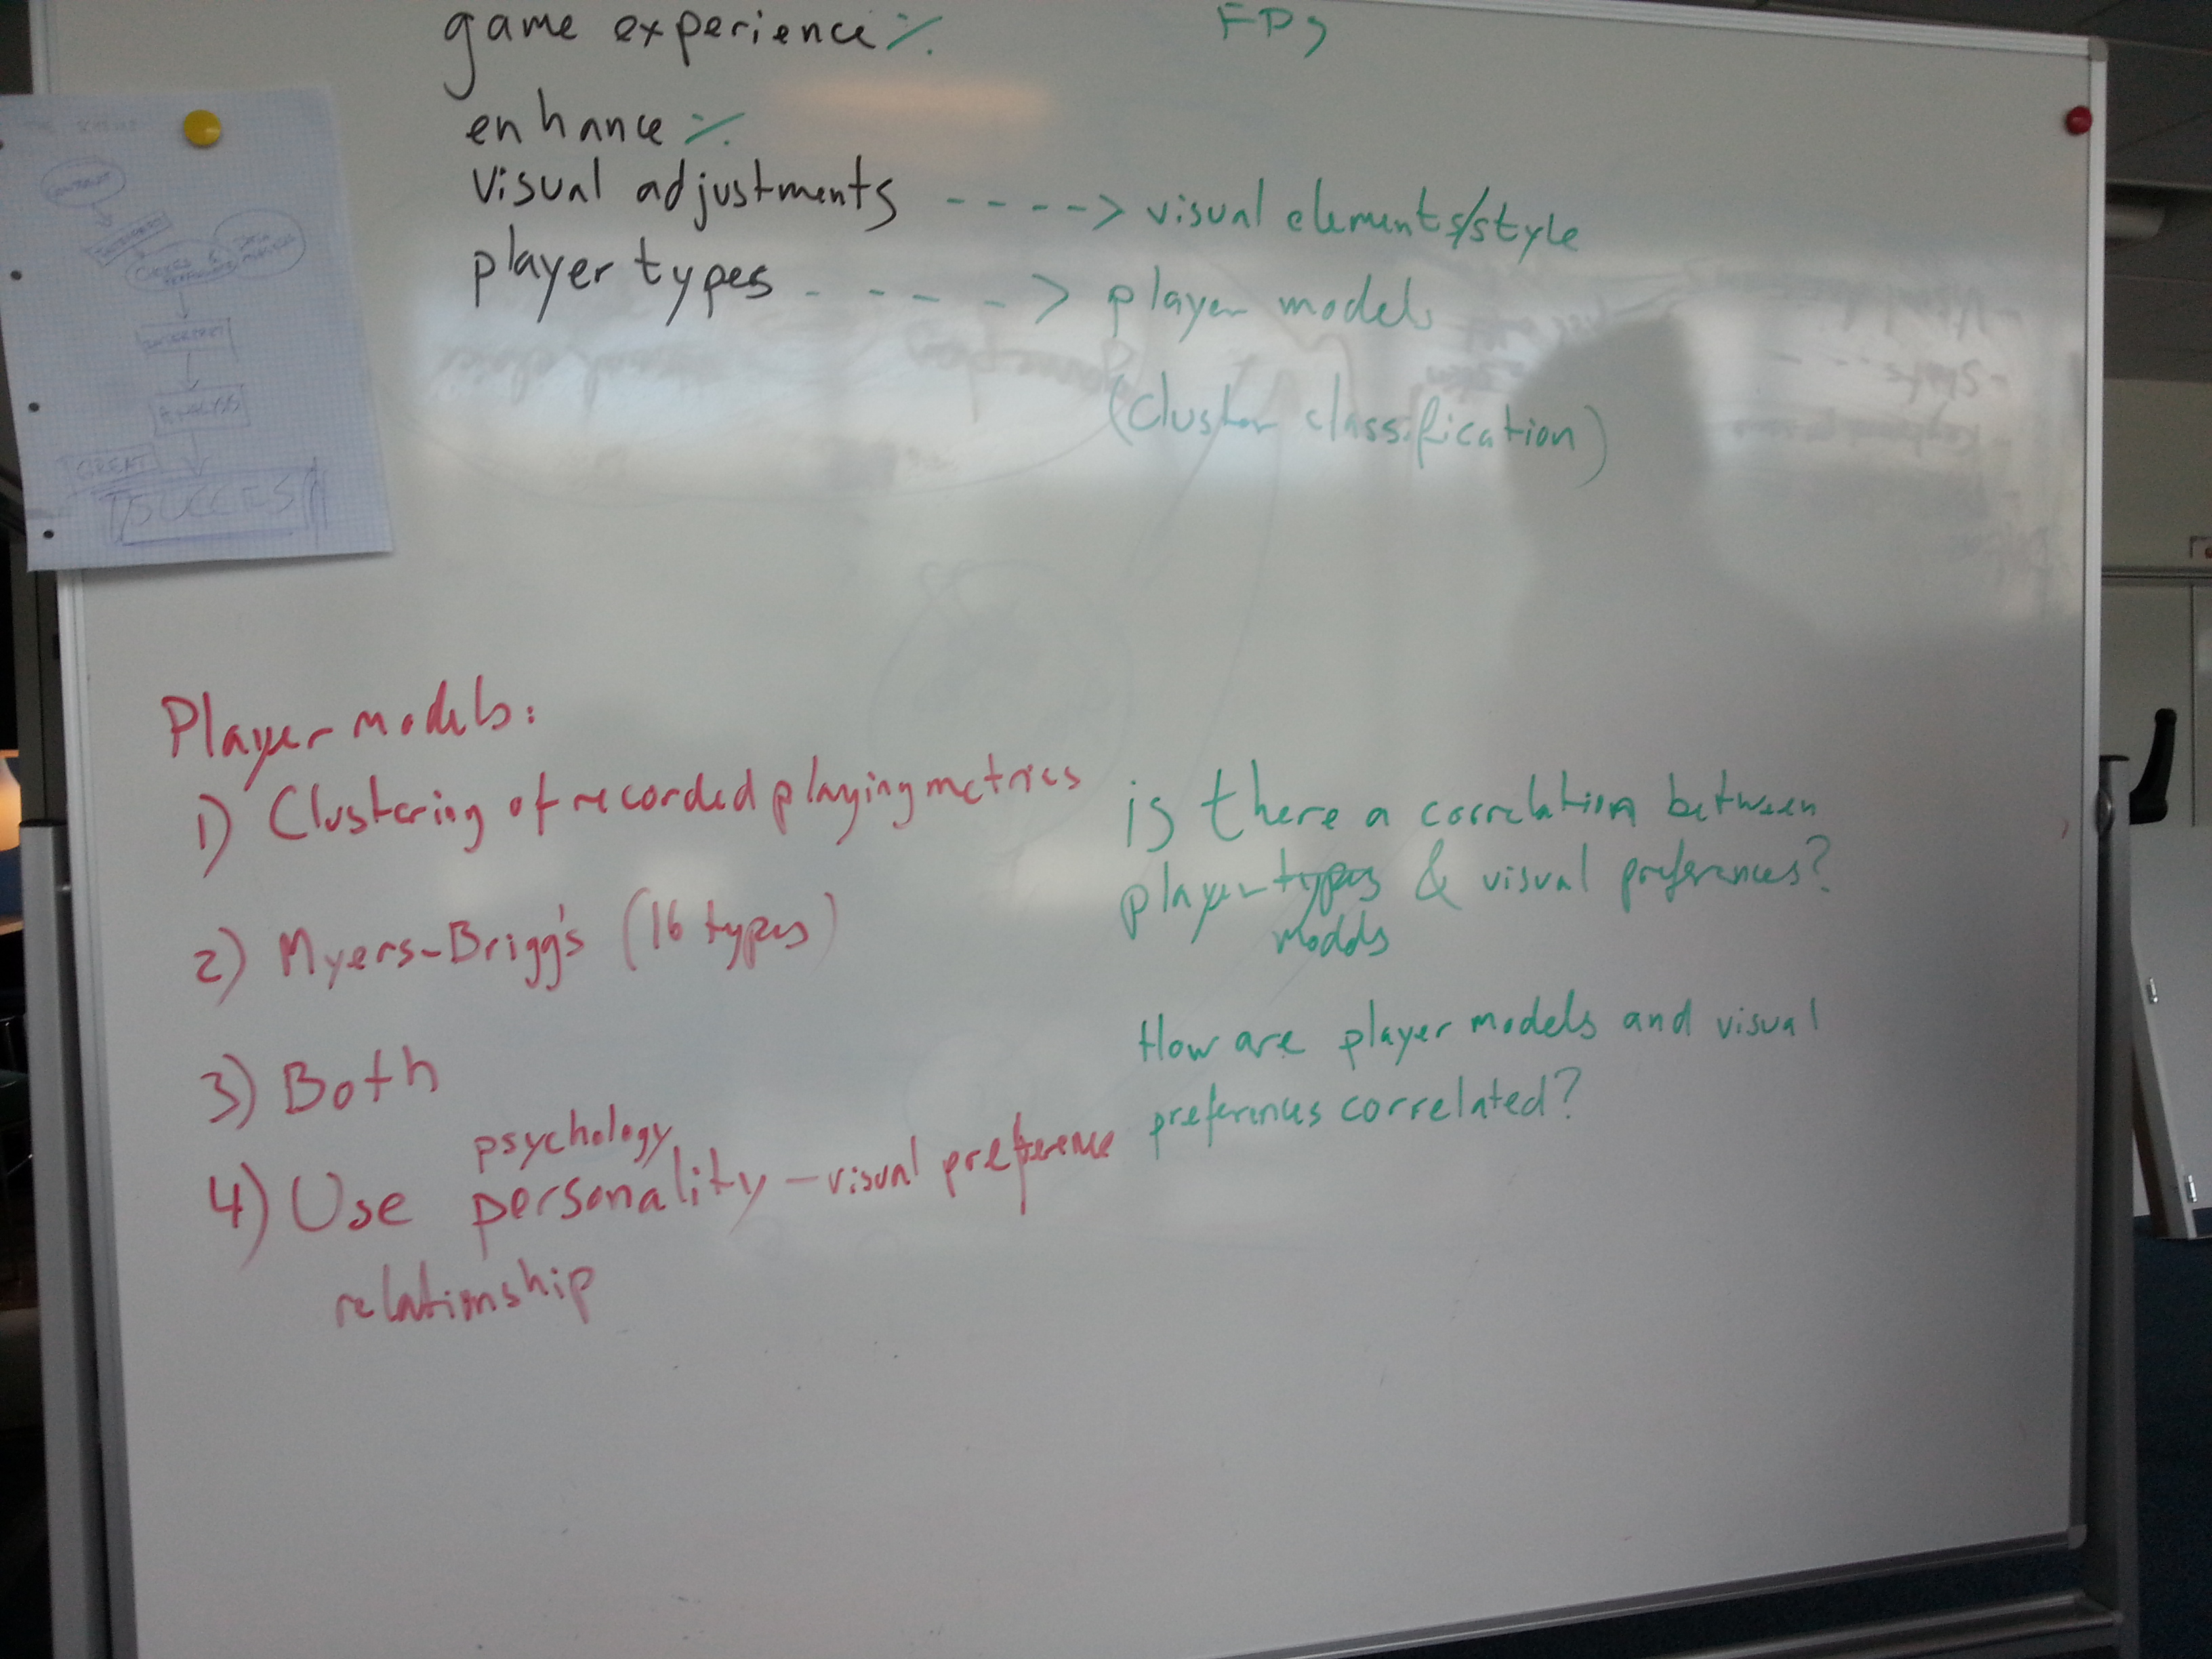 game experience ./.
FPS
enhance ./.
visual adjustments ----> visual elements/style
player types ----> player models
(cluster classification)
GREAT
SUCCESS
Player models:
1) Clustering of recorded playing metrics
2) Myers-Brigg's (16 types)
3) Both
psychology
4) Use personality - visual preference
relationship
is there a correlation between
player types & visual preferences?
models
How are player models and visual
preferences correlated?